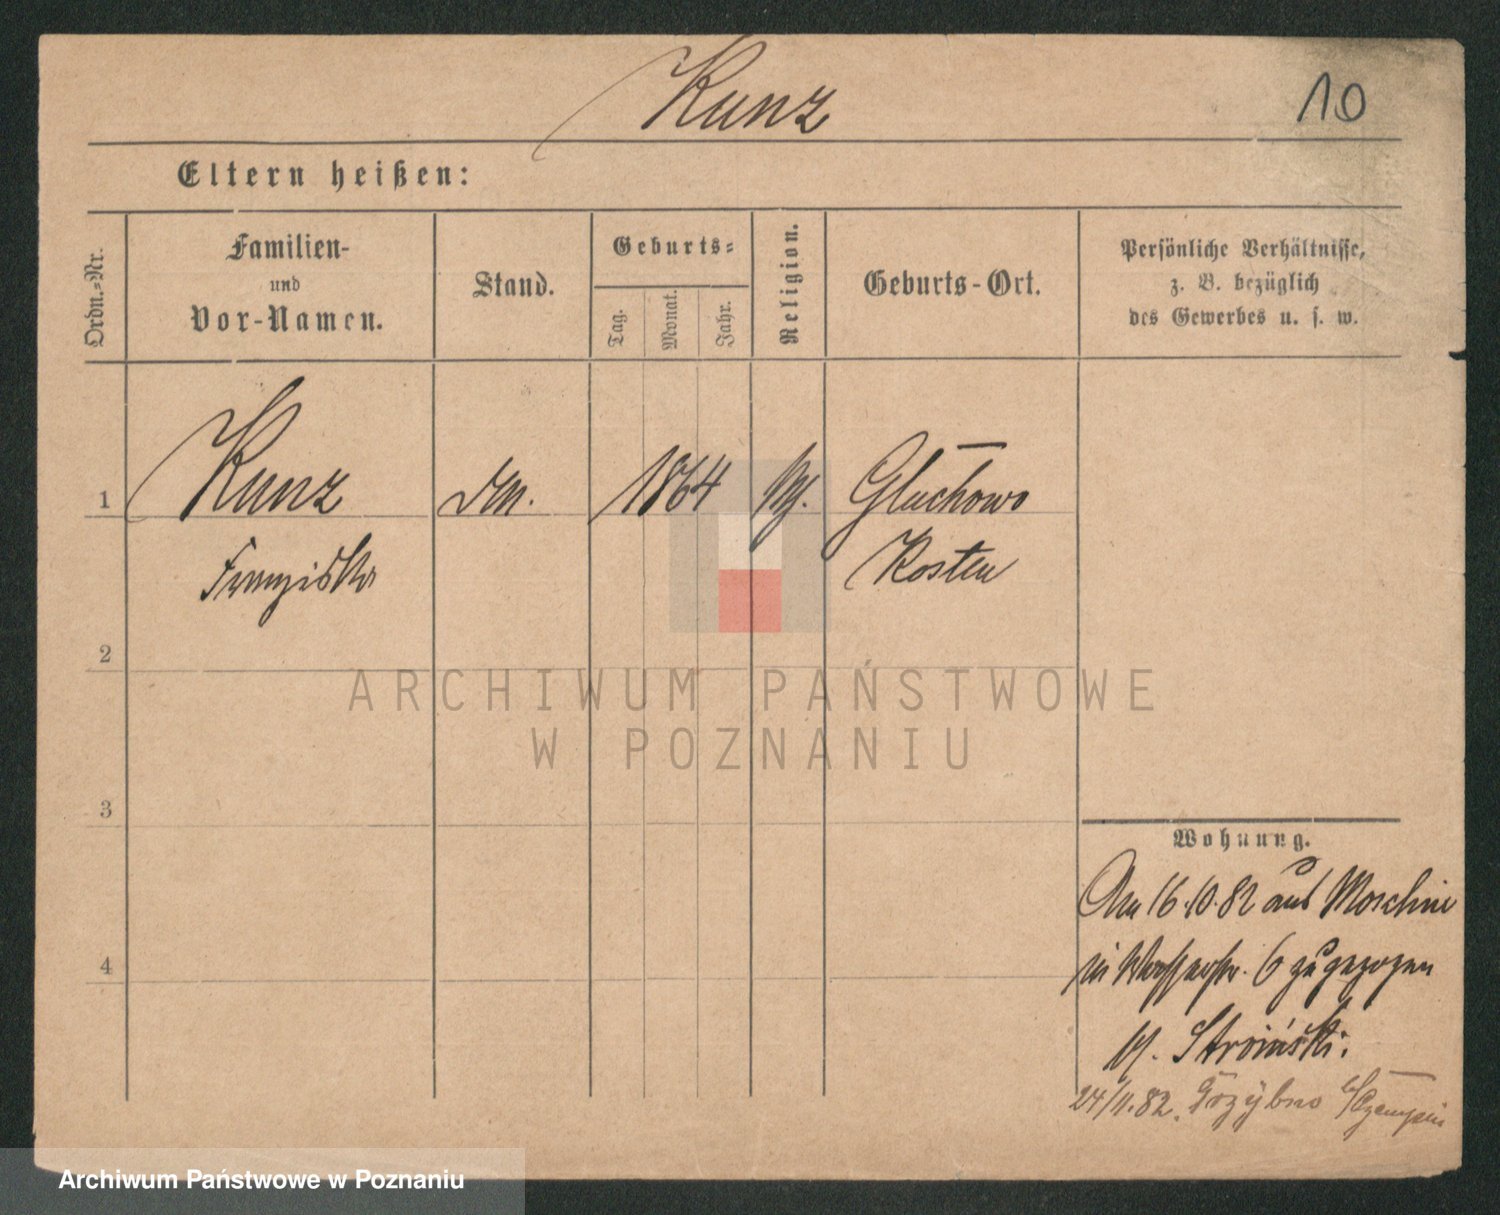 Kunz
10
Eltern heißen:
Ordn.-Nr.
Familien-
und
Vor-Namen.
Stand.
Geburts-
Tag.
Monat.
Jahr.
Religion.
Geburts-Ort.
Persönliche Verhältnisse,
z. B. bezüglich
des Gewerbes u. s. w.
1
Kunz
1864
Gluchowo
Franziska
Kosten
2
ARCHIWUM PAŃSTWOWE
W POZNANIU
3
Wohnung.
Am 16.10.82 aus Moschin
4
in 6 zugezogen
Stroiński.
24/11.82.
Archiwum Państwowe w Poznaniu